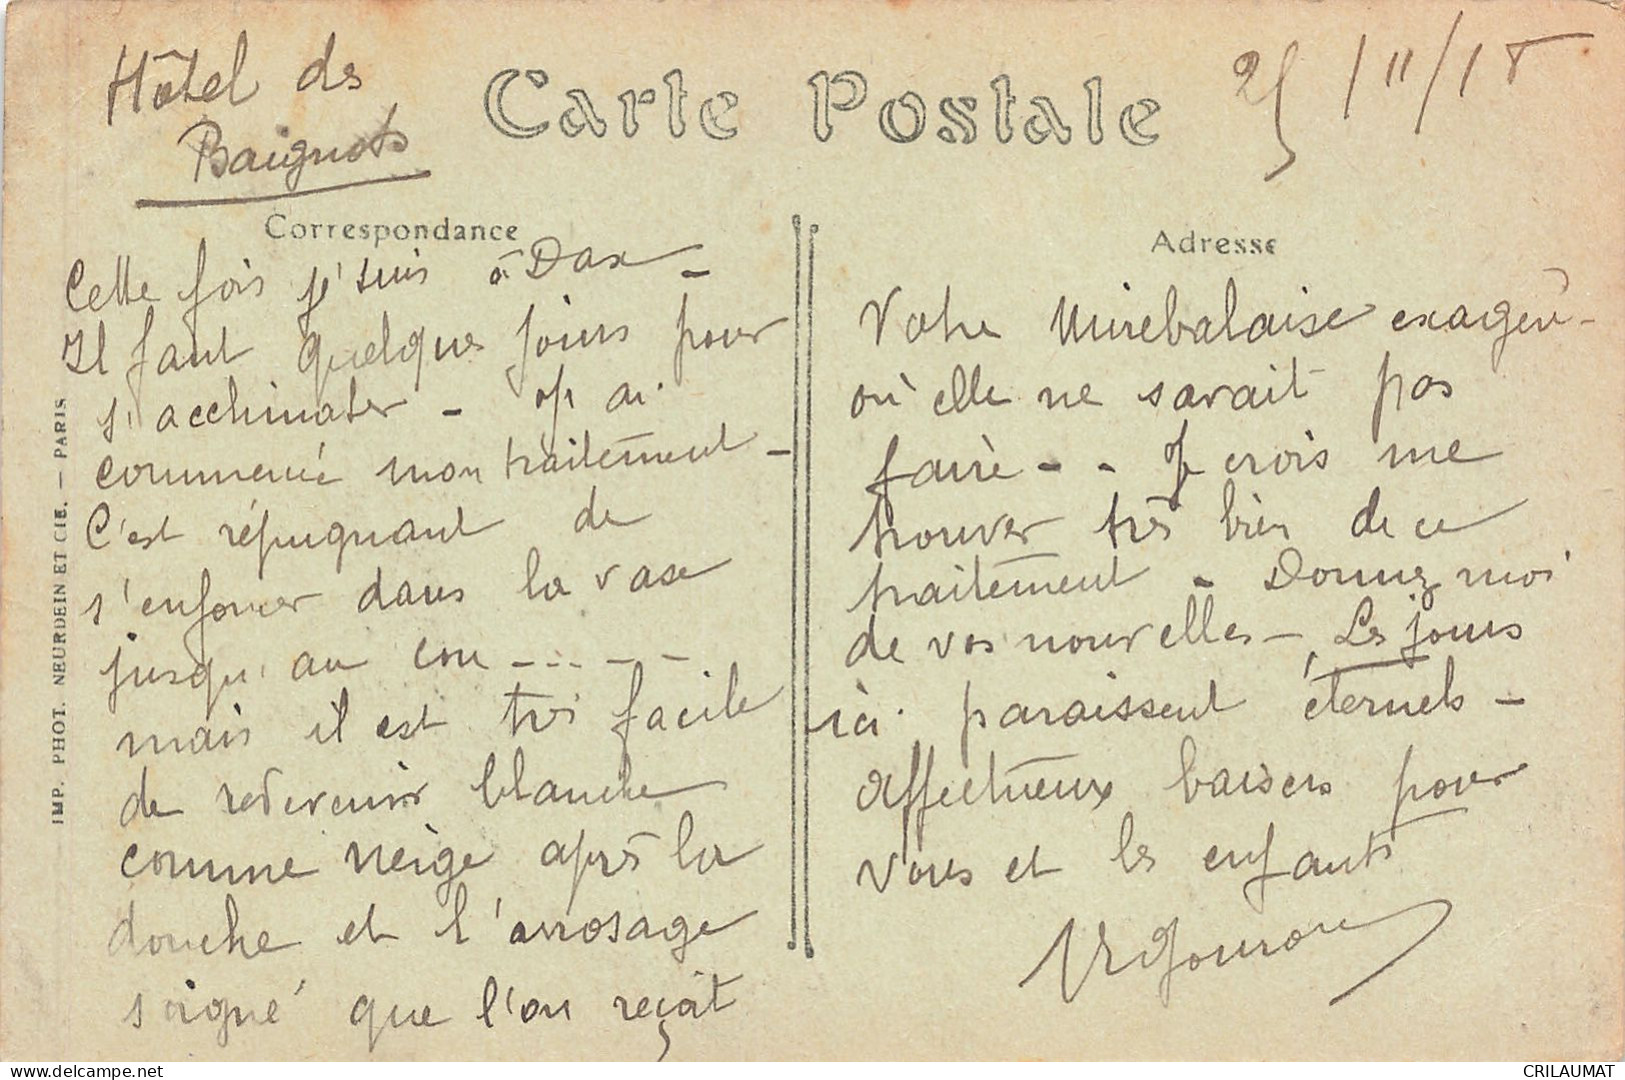 Hôtel des
Baignots
Carte Postale
25/11/18
Correspondance
Cette fois j'suis à Dax –
Il faut quelques jours pour
s'acclimater – J'ai
commencé mon traitement –
C'est répugnant de
s'enfoncer dans la vase
jusqu'au cou – – – – –
mais il est très facile
de redevenir blanche
comme neige après la
douche et l'arrosage
soigné que l'on reçoit
Adresse
Votre Mirebalaise
où elle ne sarait pas
faire - - Je crois me
trouver très bien de ce
traitement – Donnez moi
de vos nouvelles – Les jours
ici paraissent éternels –
Affectueux baisers pour
vous et les enfants
IMP. PHOT. NEURDEIN ET CIE. — PARIS
delcampe.net
CRILAUMAT